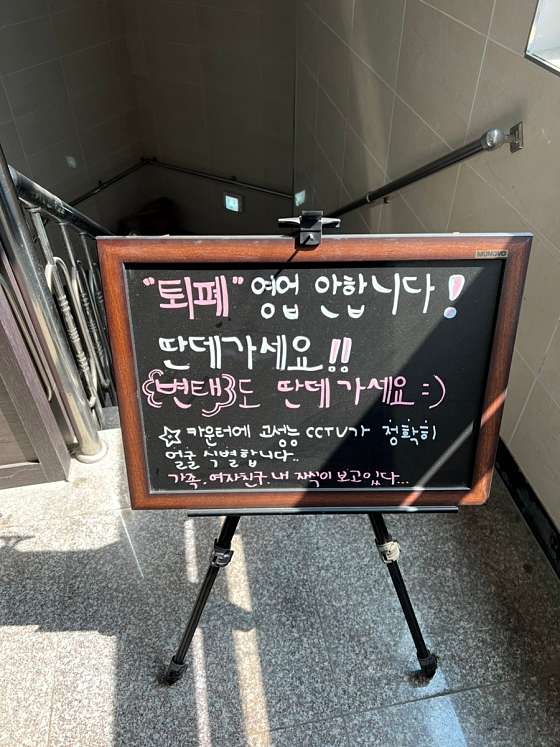 MUNGYO
"퇴폐" 영업 안합니다!
딴데가세요!!
변태도 딴데 가세요 =)
☆ 카운터에 고성능 CCTV가 정확히
얼굴 식별합니다..
가족, 여자친구, 내 자식이 보고있다...